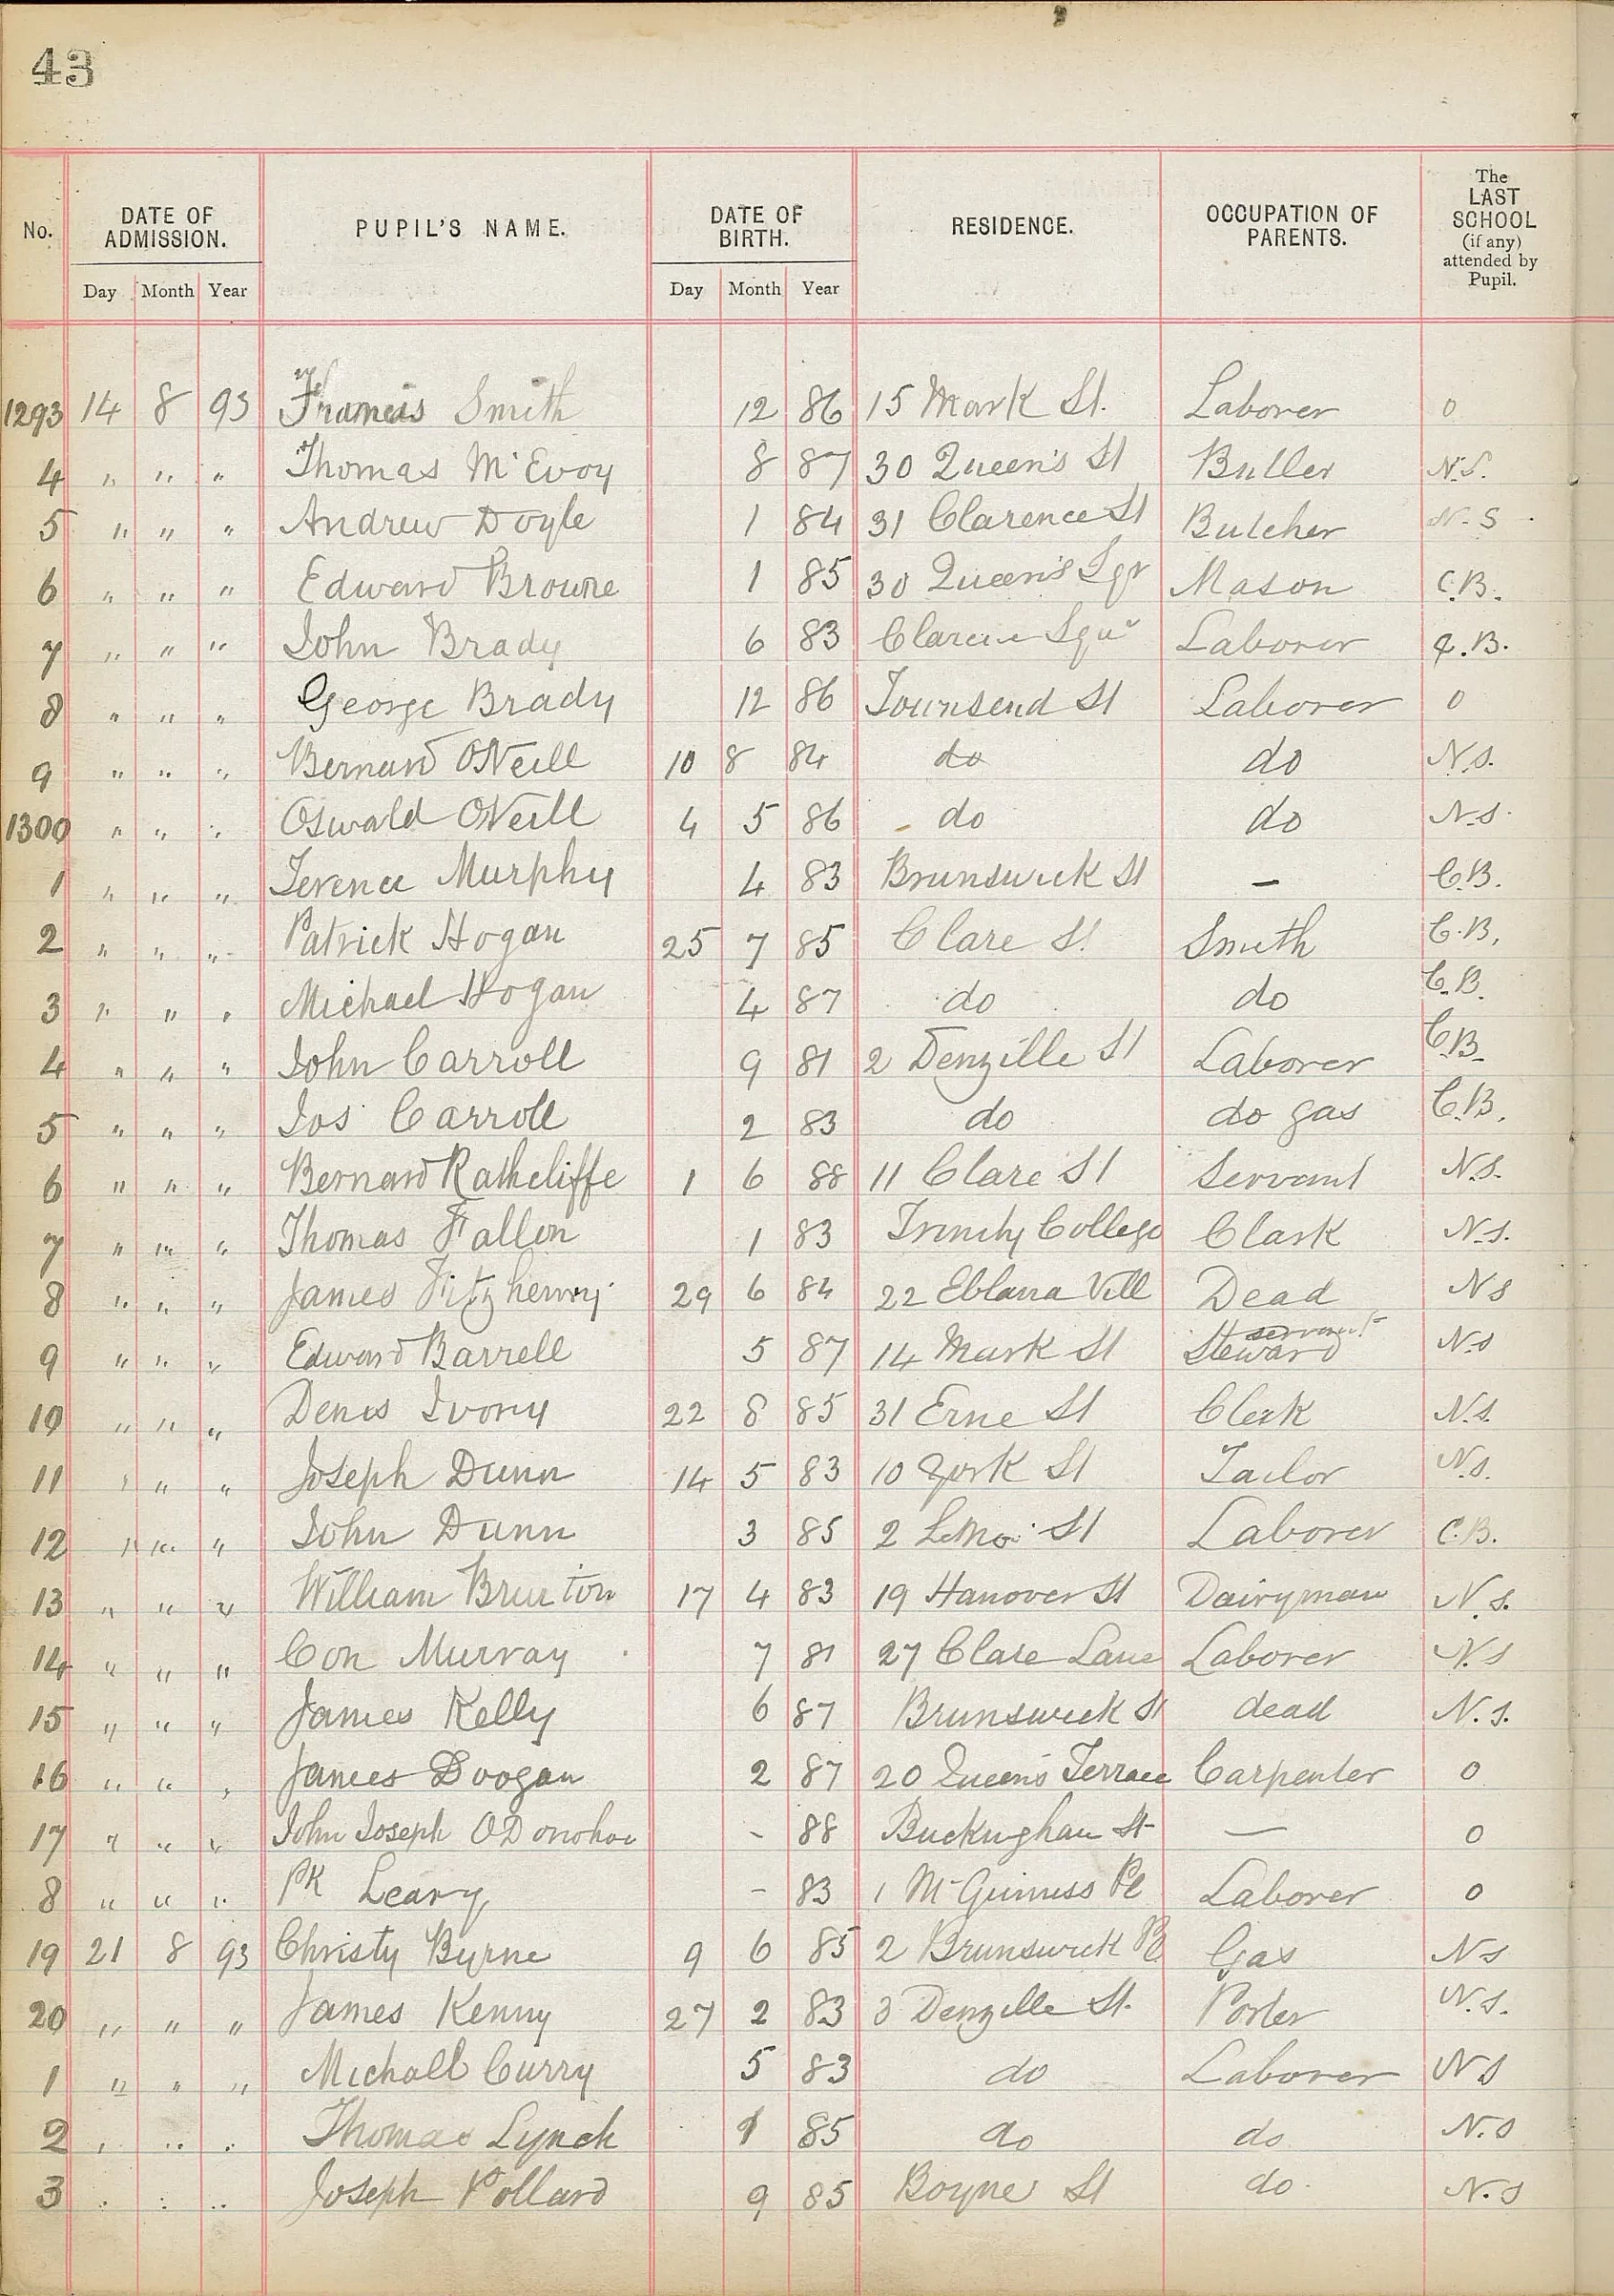 43
No. DATE OF ADMISSION. PUPIL'S NAME. DATE OF BIRTH. RESIDENCE. OCCUPATION OF PARENTS. The LAST SCHOOL (if any) attended by Pupil.
Day Month Year Day Month Year
1293 14 8 93 Francis Smith 12 86 15 Mark St. Laborer 0
4 " " " Thomas McEvoy 8 87 30 Queen's St Butler N.S.
5 " " " Andrew Doyle 1 84 31 Clarence St Butcher N.S.
6 " " " Edward Browne 1 85 30 Queen's Sqr Mason C.B.
7 " " " John Brady 6 83 Clarence Sqr Laborer C.B.
8 " " " George Brady 12 86 Townsend St Laborer 0
9 " " " Bernard O'Neill 10 8 84 do do N.S.
1300 " " " Oswald O'Neill 4 5 86 do do N.S.
1 " " " Terence Murphy 4 83 Brunswick St – C.B.
2 " " " Patrick Hogan 25 7 85 Clare St Smith C.B.
3 " " " Michael Hogan 4 87 do do C.B.
4 " " " John Carroll 9 81 2 Denzille St Laborer C.B.
5 " " " Jos Carroll 2 83 do do gas C.B.
6 " " " Bernard Rathcliffe 1 6 88 11 Clare St Servant N.S.
7 " " " Thomas Fallon 1 83 Trinity College Clark N.S.
8 " " " James Fitzhenry 29 6 84 22 Eblana Vill Dead N S
9 " " " Edward Barrell 5 87 14 Mark St Steward servant N.S
10 " " " Denis Ivory 22 8 85 31 Erne St Clerk N.S.
11 " " " Joseph Dunn 14 5 83 10 York St Tailor N.S.
12 " " " John Dunn 3 85 2 St Laborer C.B.
13 " " " William Bruton 17 4 83 19 Hanover St Dairyman N.S.
14 " " " Con Murray 7 81 27 Clare Lane Laborer N.S
15 " " " James Kelly 6 87 Brunswick St dead N.S.
16 " " " James Doogan 2 87 20 Queen's Terrace Carpenter 0
17 " " " John Joseph O'Donohoe - 88 Buckingham St — 0
8 " " " Pk Leary - 83 1 McGuinness Pl Laborer 0
19 21 8 93 Christy Byrne 9 6 85 2 Brunswick Pl Gas N S
20 " " " James Kenny 27 2 83 3 Denzille St. Porter N.S.
1 " " " Michall Curry 5 83 do Laborer N S
2 " " " Thomas Lynch 1 85 do do N.S
3 " " " Joseph Pollard 9 85 Boyne St do N.S